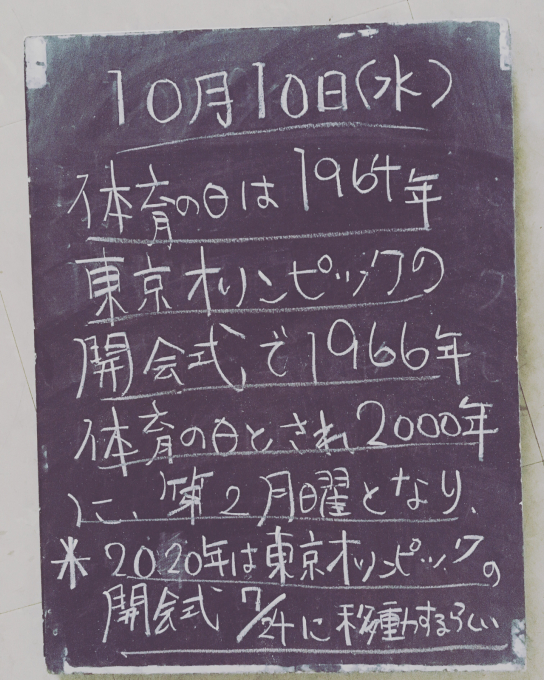 10月10日(水)
体育の日は1964年
東京オリンピックの
開会式で1966年
体育の日とされ2000年
に、第2月曜となり、
※2020年は東京オリンピックの
開会式7/24に移動するらしい